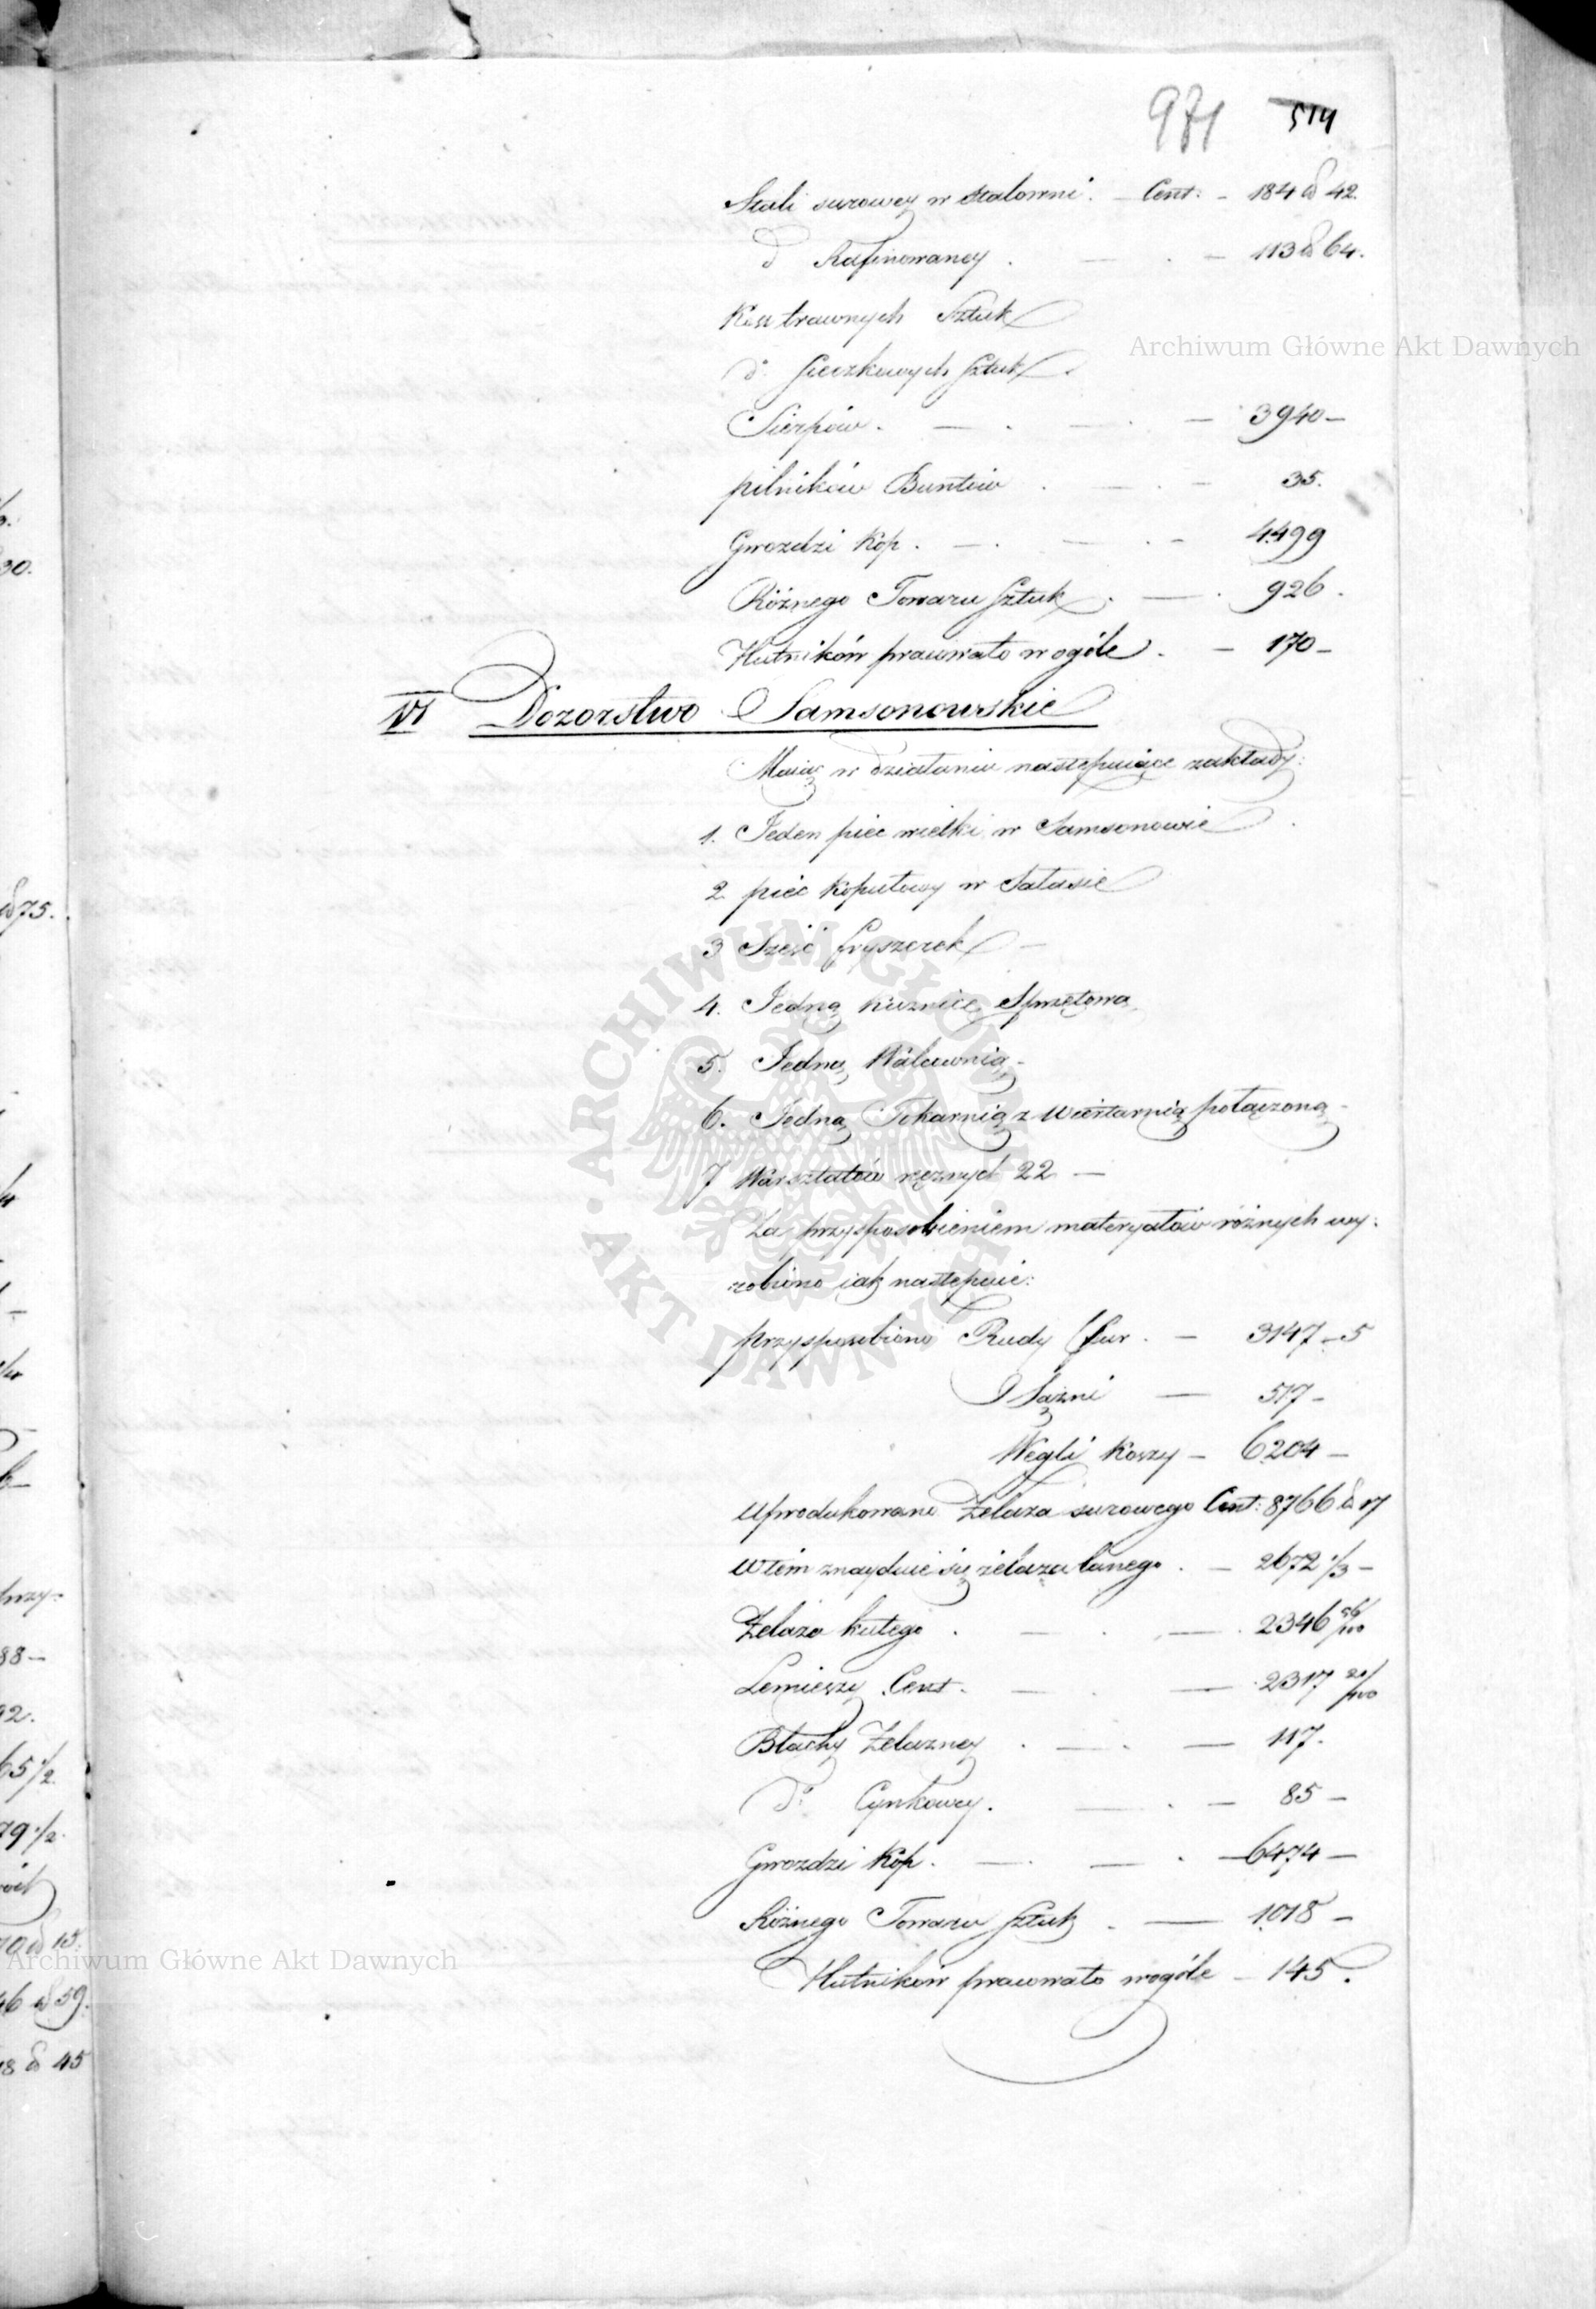 971 514
Stali surowey w Stalowni. — Cent: — 184 ℔ 42.
d° Rafinowaney . — . — 113 ℔ 64.
Kos trawnych Sztuk
d° Sieczkowych Sztuk
Sierpów . — . — . — 3940 —
pilników Buntów . — . — 35.
Gwozdzi Kóp . — . — . — 4499
Różnego Towaru Sztuk . — . 926 .
Hutników pracowało w ogóle . — 170 —
VI Dozorstwo Samsonowskie
Maiąc w działaniu następuiące zakłady:
1. Jeden piec wielki w Samsonowie
2 piec kopułowy w Sałasie
3 Sześć fryszerek —
4. Jedną kuznicę Sprzętową
5. Jedną Walcownią —
6. Jedną Tokarnią z wiertarnią połączoną —
7 Warsztatów ręcznych 22 —
Za przysposobieniem materyałów różnych wy:
robiono iak następuie:
przysposobiono Rudy fur . — 3147 — 5
Sązni — 517 —
Węgli Koszy — 6204 —
Uprodukowano Żelaza surowego Cent: 8766 ℔ 17
W tém znayduie się żelaza lanego . — 2672 1/3 —
Żelaza kutego . — . — . 2346 56/100
Lemieszy Cent . — . — 2317 20/100
Blachy Żelazney . — . — 117.
d° Cynkowey . — . — 85 —
Gwozdzi Kóp . — . — . — 6474 —
Różnego Towaru Sztuk . — 1018 —
Hutników pracowało wogóle — 145.
Archiwum Główne Akt Dawnych
ARCHIWUM GŁÓWNE AKT DAWNYCH
Archiwum Główne Akt Dawnych
Archiwum Główne Akt Dawnych